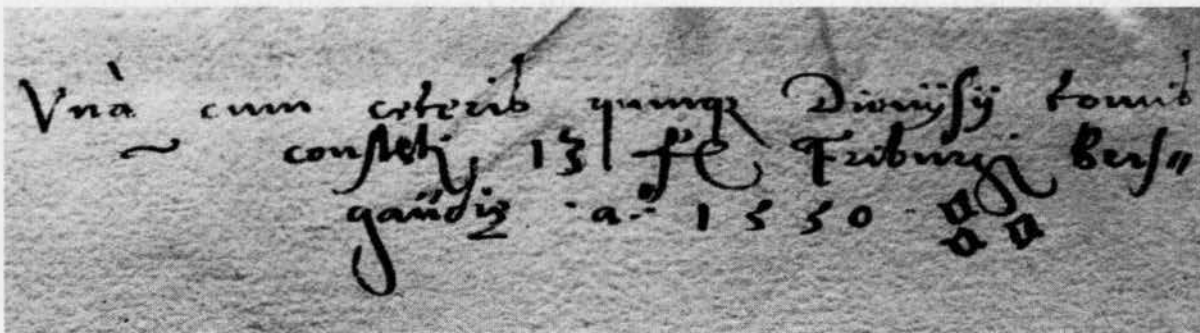 Vnà cum ceteris quinqȝ Dionysij tomis
constat, 13 fl Friburgi Bris=
gaudiȩ · a.º 1550 ·